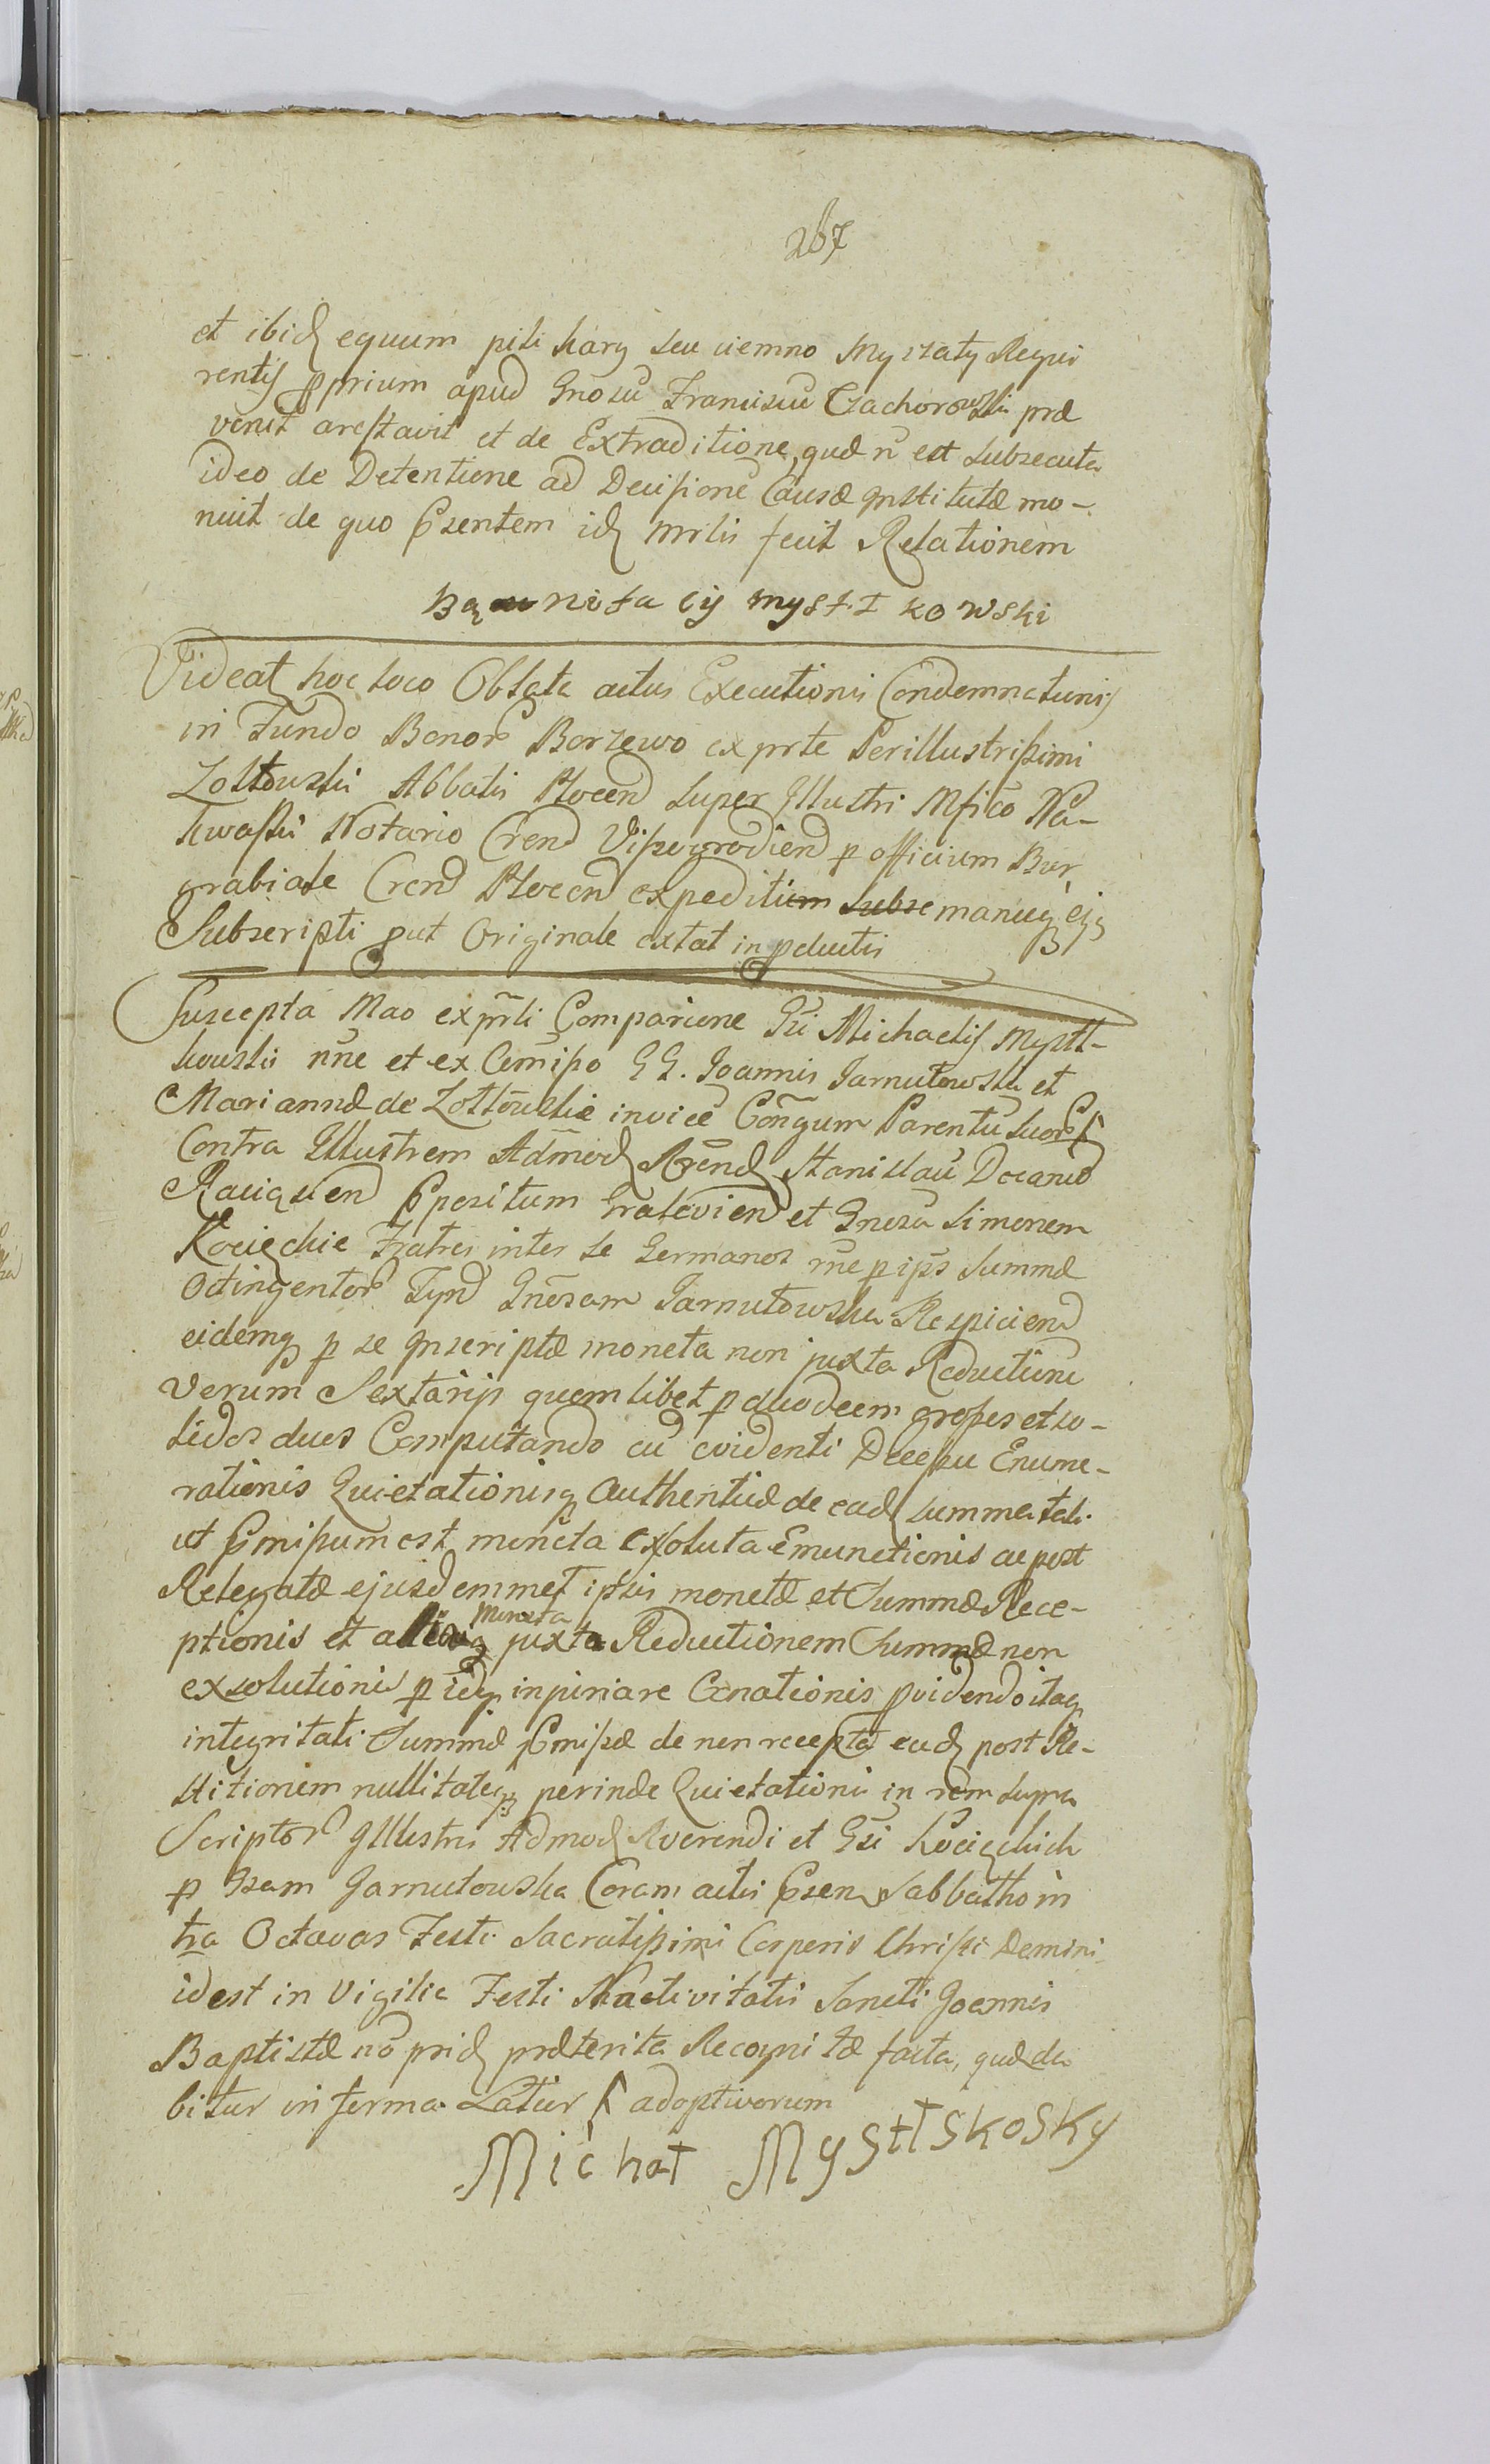 267
et ibid equum pili kary seu ciemno Myszaty Requi
rentis pprium apud Gnosu Franciscu Czachorowski præ
venit arestavit et de Extraditione, quæ n est subsecuta
ideo de Detentione ad Decisione Causæ Institutæ mo-
nuit de quo Psentem id mrlis fecit Relationem
Myst kowski
Videat hoc loco Oblata actus Executionis Condemnationis
in Fundo Bonor Borzewo ex prte Perillustrissimi
Zołtowski Abbatis Plocen super Illustri Mfico Na-
kwaski Notario Cren Vissogrodien p officium Bur
grabiale Cren Plocen expeditum subsc manuq ejq
Subscripti put Originale extat in pductis
Suscepta Mao ex prli Comparione Gsi Michaelis Mystt-
kowski nne et ex Cemisso GG. Joannis Jarnutowski et
Mariannæ de Zołtowskie invice Congum Parentu suor
Contra Illustrem Admod Rrend Stanislau Decanu
Raciązen Ppositum Gralevien et Gnosu Simonem
Kocięckie Fratres inter se Germanos rne p ips Summæ
Octingentor Tynf Gnosam Jarnutowska Respicien
eidemq p se Inscriptæ moneta non juxta Reductione
verum Sextarijs quemlibet p duodecem grosses et so-
lidos dues Computando cu evidenti Decessu Enume-
rationis Quietationisq Authenticæ de ead summa tali
ut Pmissum est moneta exoluta Emunctionis ac post
Relegatæ ejusdemmet ipsius monetæ et Summæ Rece-
ptionis et aliaq moneta juxta Reductionem Summæ non
exsolutionis p idq inpiriare Cœnationis pvidendo itaq
integritati Summæ Pmissæ de non recepta ead post Re-
stitionem nullitateq perinde Quietationis in rem supra
Scriptor Illustris Admod Rverendi et Gsi Kocięckich
p Gsam Jarnutowska Coram actis Psen Sabbatho in
tra Octavas Festi Sacratissimi Corporis Christi Domini
idest in Vigilia Festi Nactivitatis Sancti Joannis
Baptistæ no prid præterita Recognitæ facta, quæ da
bitur in forma Latiur adoptivorum
Michał Mysttskosky